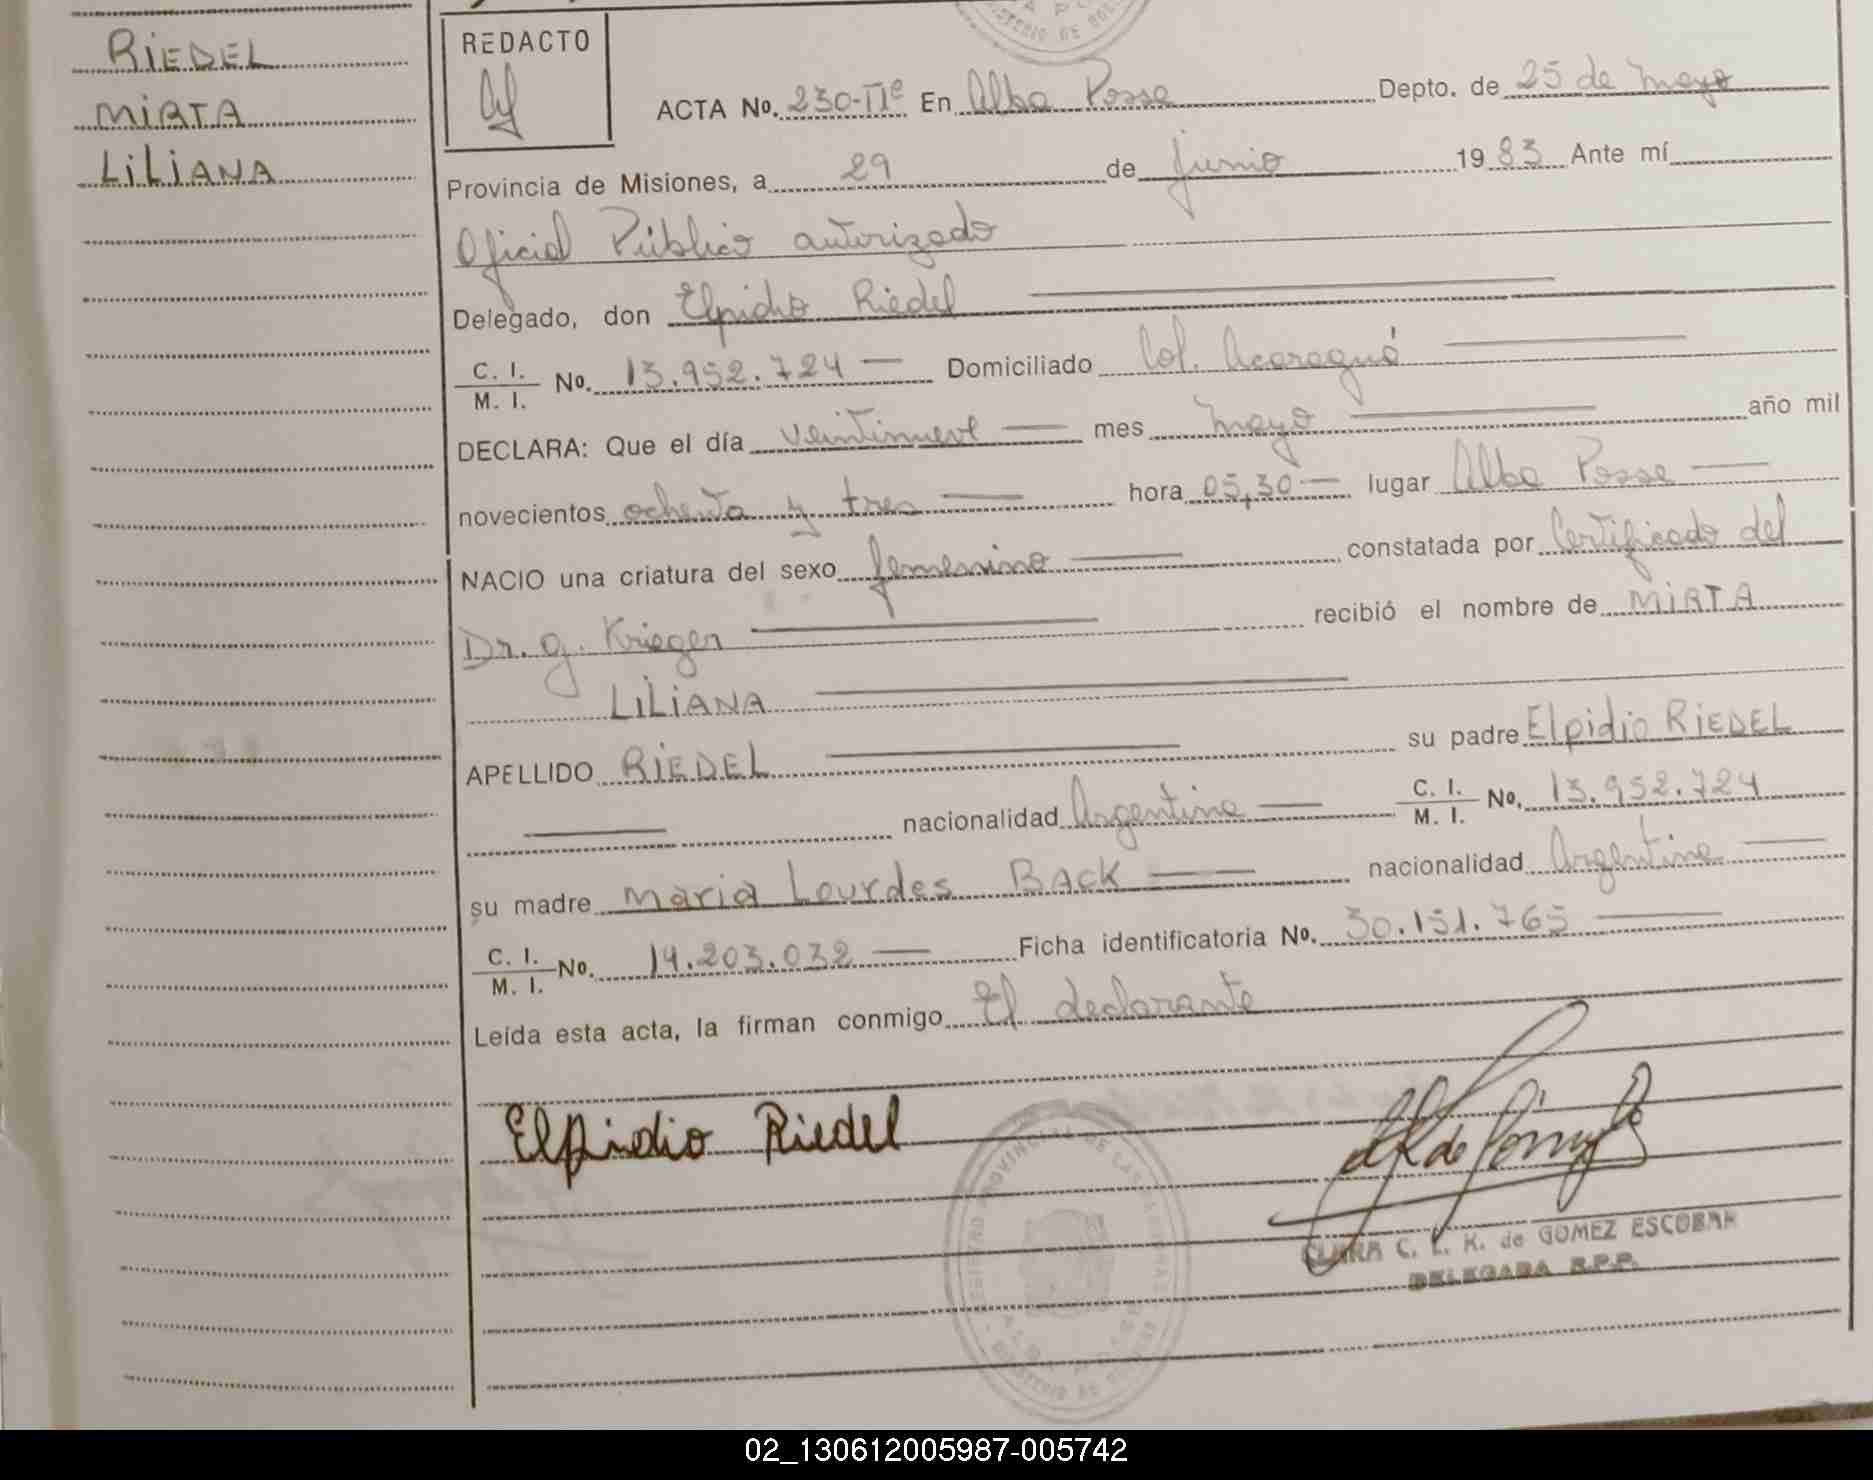 RIEDEL
MIRTA
LILIANA
REDACTO
ACTA No. 230-IIº En Alba Posse Depto. de 25 de Mayo
Provincia de Misiones, a 29 de junio 1983 Ante mí
Oficial Público autorizado
Delegado, don Elpidio Riedel
C. I. / M. I. No. 13.952.724 — Domiciliado Col. Acaraguá
DECLARA: Que el día veintinueve — mes mayo año mil
novecientos ochenta y tres — hora 05,30 — lugar Alba Posse —
NACIO una criatura del sexo femenino — constatada por Certificado del
Dr. G. Krieger recibió el nombre de MIRTA
LILIANA
APELLIDO RIEDEL su padre Elpidio RIEDEL
nacionalidad Argentina — C. I. / M. I. No. 13.952.724
su madre Maria Lourdes BACK — nacionalidad Argentina —
C. I. / M. I. No. 14.203.032 — Ficha identificatoria No. 30.151.765 —
Leída esta acta, la firman conmigo El declarante
Elpidio Riedel
CLARA C. L. K. de GOMEZ ESCOBAR
DELEGADA R.P.P.
02_130612005987-005742